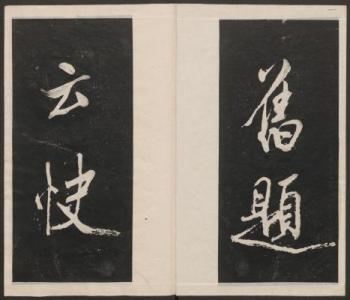 舊題
云快